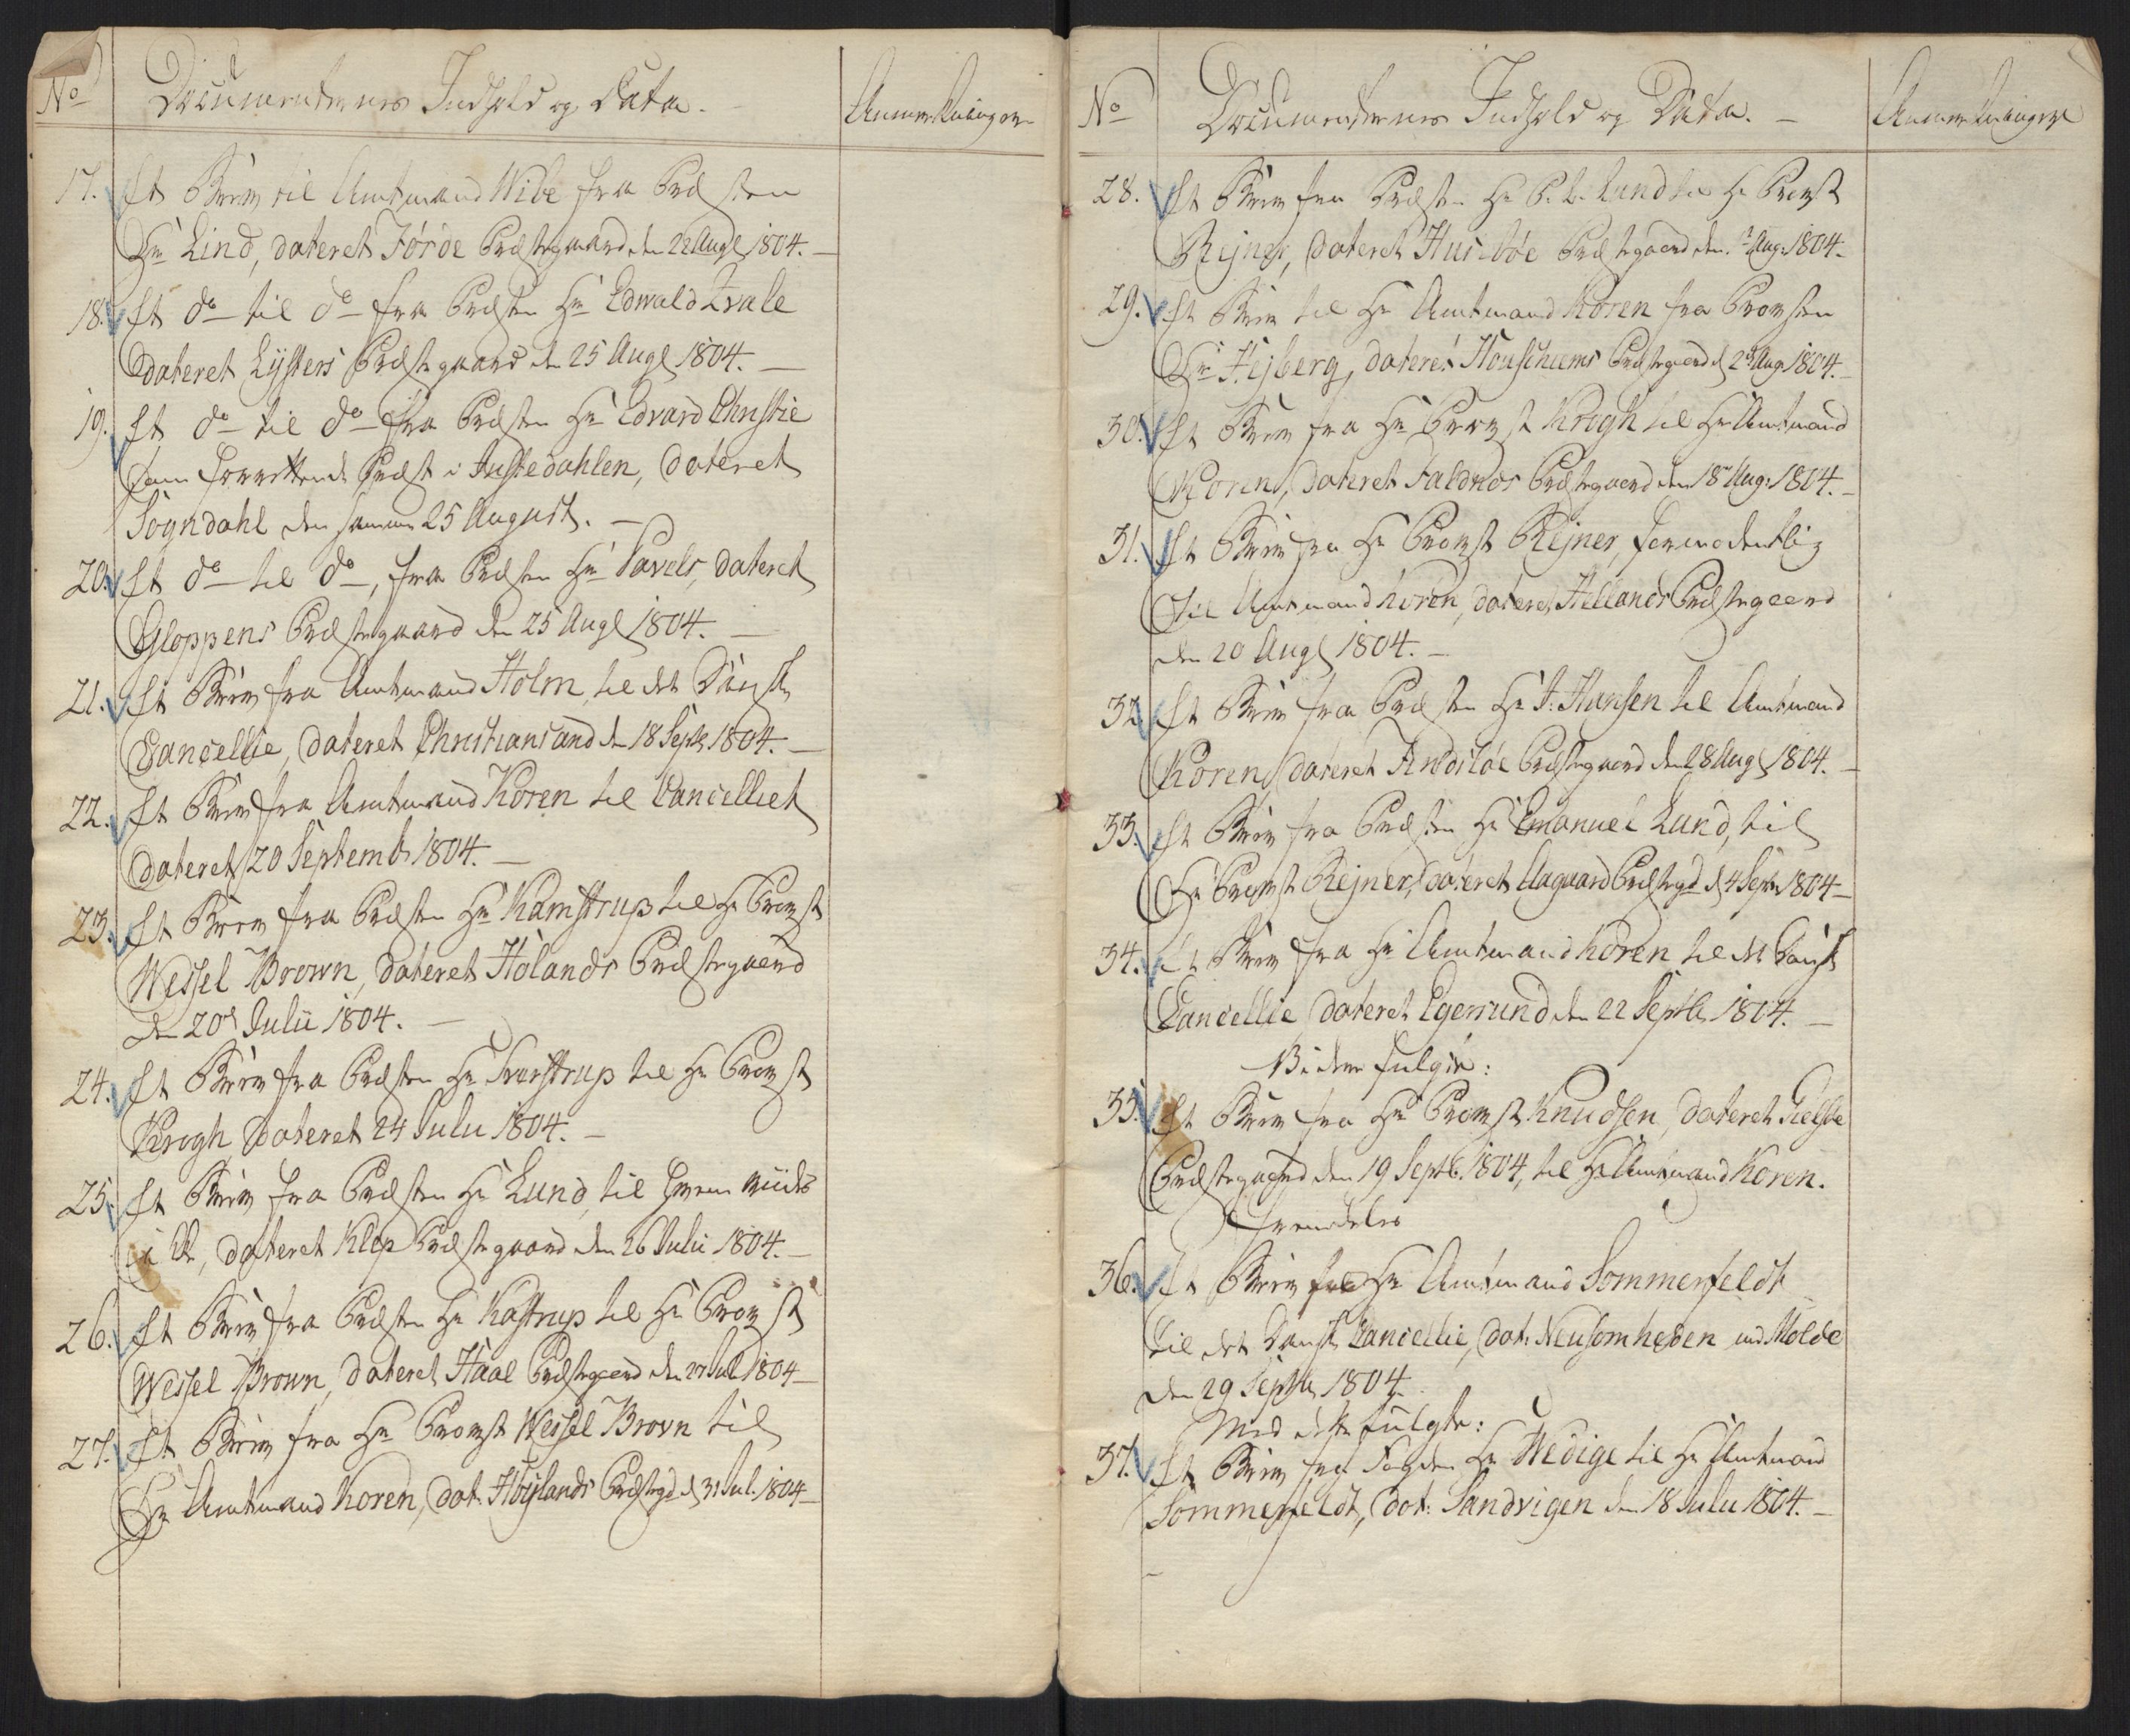 No
Documenternes Indhold og Data. –
Anmerkninger
17. Et Brev til Amtmand Wibe fra Præsten
Hr Lind, dateret Førde Præstegaard den 22 Augl 1804. –
18. Et do til do fra Præsten Hr Edvald Qvale
dateret Lysters Præstegaard den 25 Augl 1804. –
19. Et do til do fra Præsten Hr Edvard Christie
som forrettende Præst i Justedahlen, dateret
Sogndahl den samme 25 August. –
20. Et do til do, fra Præsten Hr Pavels, dateret
Gloppens Præstegaard den 25 Augl 1804. –
21. Et Brev fra Amtmand Holm, til det Danske
Cancellie, dateret Christiansand d 18 Septr 1804. –
22. Et Brev fra Amtmand Koren til Cancelliet
dateret 20 Septembr 1804. –
23. Et Brev fra Præsten Hr Kamstrup til Hr Provst
Wessel Brown, dateret Hølands Præstegaard
den 20de Julii 1804. –
24. Et Brev fra Præsten Hr Sverstrup til Hr Provst
Krogh, dateret 24 Julii 1804. –
25. Et Brev fra Præsten Hr Lund, til
dateret Klep Præstegaard den 26 Julii 1804. –
26. Et Brev fra Præsten Hr Kastrup til Hr Provst
Wessel Brown, dateret Haae Præstegaard den 27 Jul 1804 –
27. Et Brev fra Hr Provst Wessel Brovn til
Hr Amtmand Koren, dat. Höylands Præstegd d 31 Jul. 1804 –
No
Documenternes Indhold og Data. –
Anmerkninger
28. Et Brev fra Præsten Hr Lund til Hr Provst
Rejner, dateret Husebøe Præstegaard den Aug. 1804. –
29. Et Brev til Hr Amtmand Koren fra Provsten
Hr Hejberg, dateret Houschiems Præstegaard d 23 Aug. 1804. –
30. Et Brev fra Hr Provst Krogh til Hr Amtmand
Koren, dateret Faldnæs Præstegaard den 18de Aug: 1804. –
31. Et Brev fra Hr Provst Rejner, formodentlig
til Amtmand Koren, dateret Hellands Præstegaard
den 20 Augl 1804. –
32. Et Brev fra Præsten Hr J: Hansen til Amtmand
Koren, dateret Findsløe Præstegaard den 28 Augl 1804. –
33. Et Brev fra Præsten Hr Emanuel Lund, til
Hr Provst Rejner, dateret Aagaard Præstegd d 4 Septr 1804 –
34. Et Brev fra Hr Amtmand Koren til det Danske
Cancellie dateret Egersund den 22 Septbr 1804. –
Videre fulgte:
35. Et Brev fra Hr Provst Knudsen, dateret
Præstegaard den 19 Septb. 1804, til Hr Amtmand Koren.
fremdeles
36. Et Brev fra Hr Amtmand Sommerfeldt
til det Danske Cancellie, dat: Neusomheden ved Molde
den 29 Septbr 1804.
Med dette fulgte:
37. Et Brev fra Fogden Hr Wedige til Hr Amtmand
Sommerfeldt, dat: Sandvigen den 18 Julii 1804. –